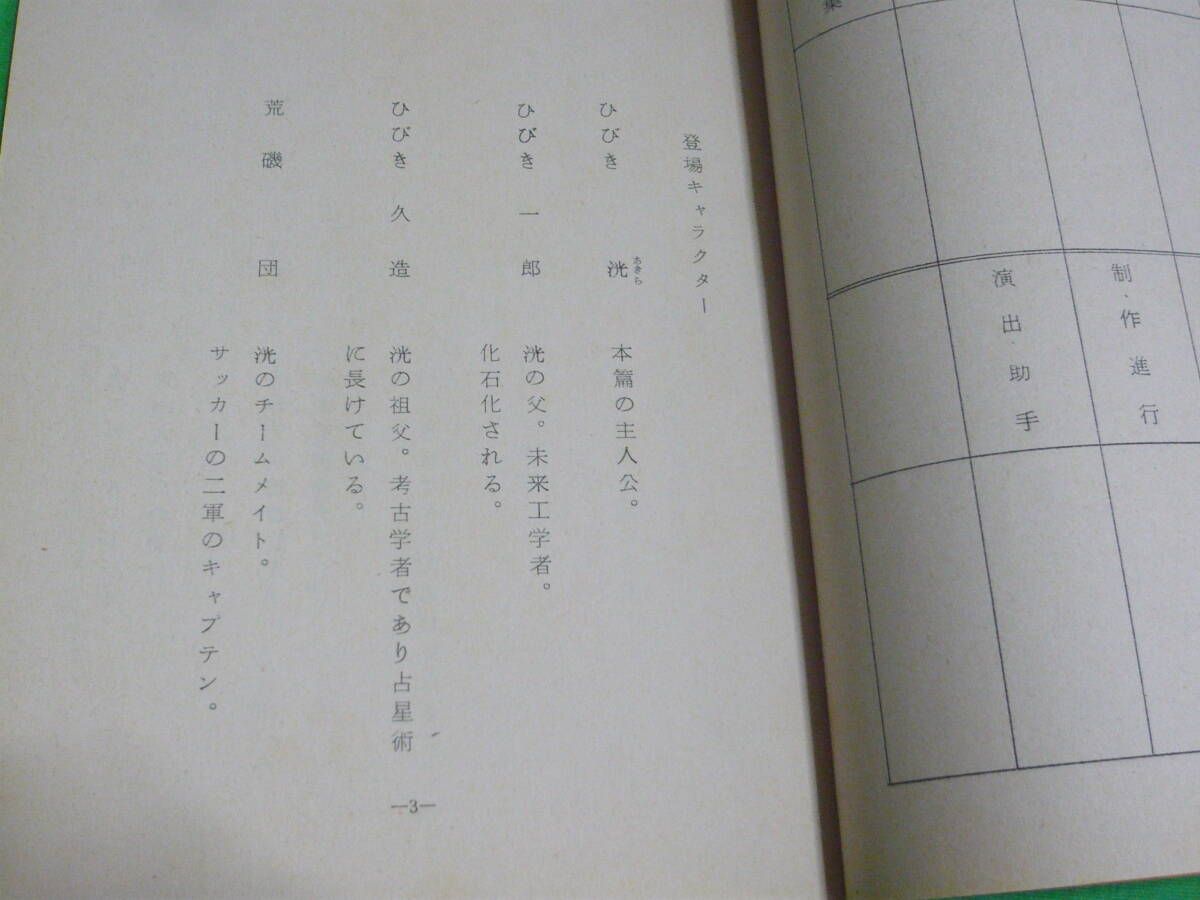 集
制作進行
演出助手
登場キャラクター
ひびき 洸 あきら
本篇の主人公。
ひびき 一郎
洸の父。未来工学者。
化石化される。
ひびき 久造
洸の祖父。考古学者であり占星術
に長けている。
荒磯 団
洸のチームメイト。
サッカーの二軍のキャプテン。
—3—